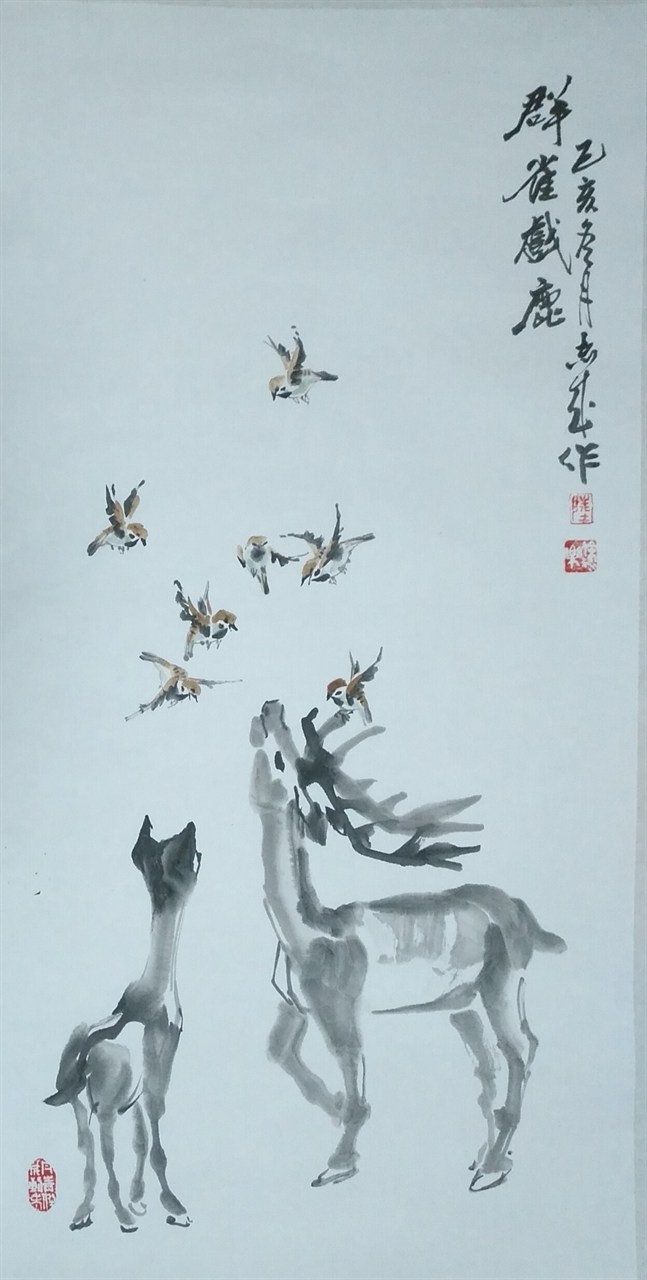 群雀戲鹿
己亥冬月志成作